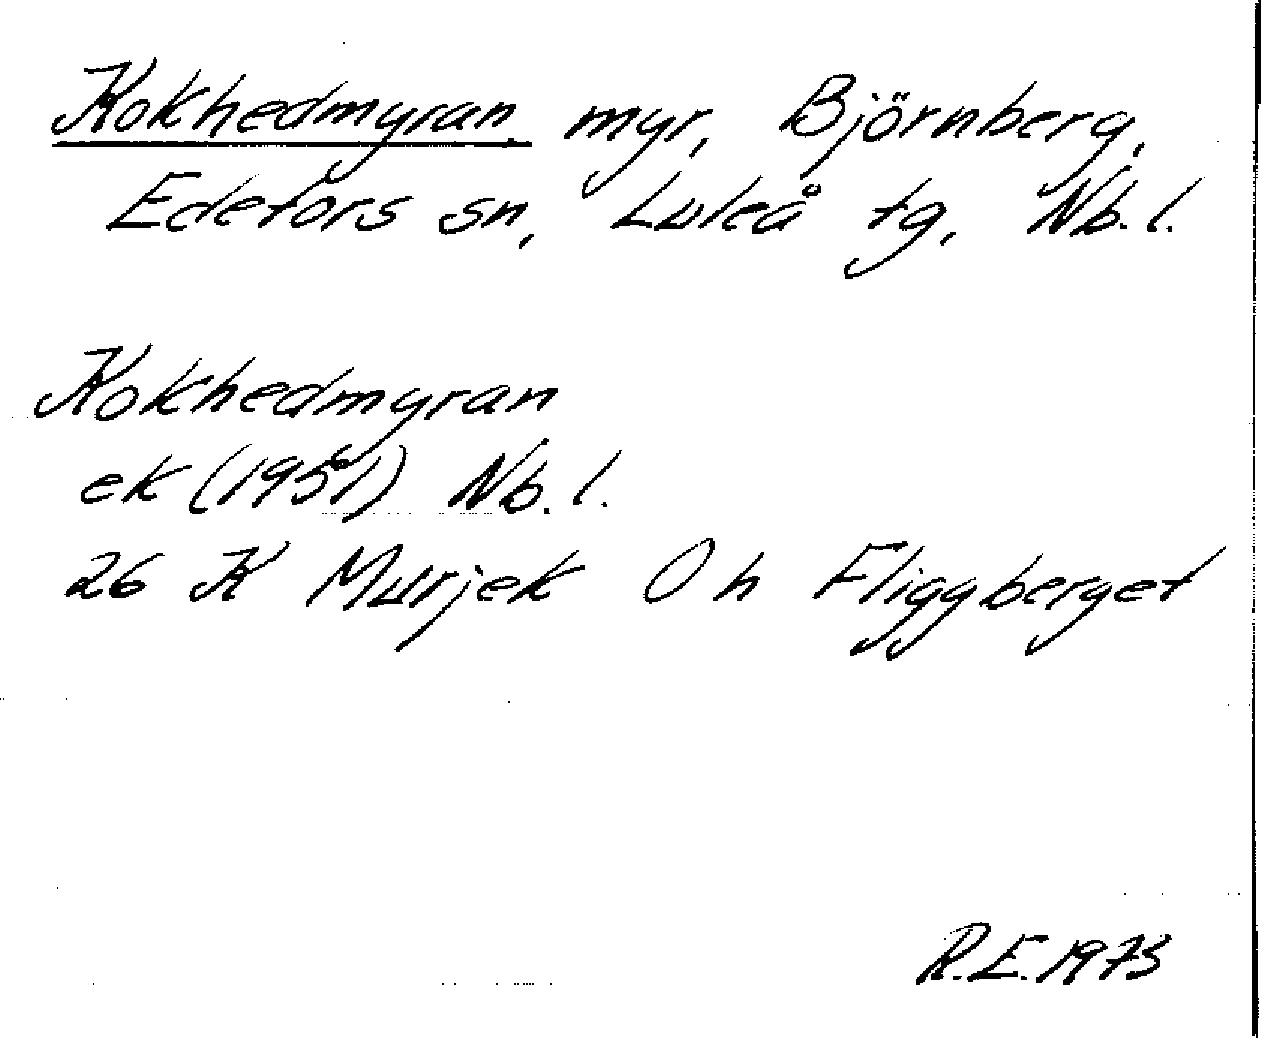 Kokhedmyran, myr, Björnberg,
Edefors sn, Luleå tg, Nb. l.
Kokhedmyran
ek (1951) Nb. l.
26 K Murjek O h Fliggberget
R.E. 1973